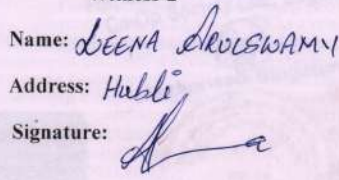 Name: LEENA AROLSWAMY
Address: Hubli
Signature: